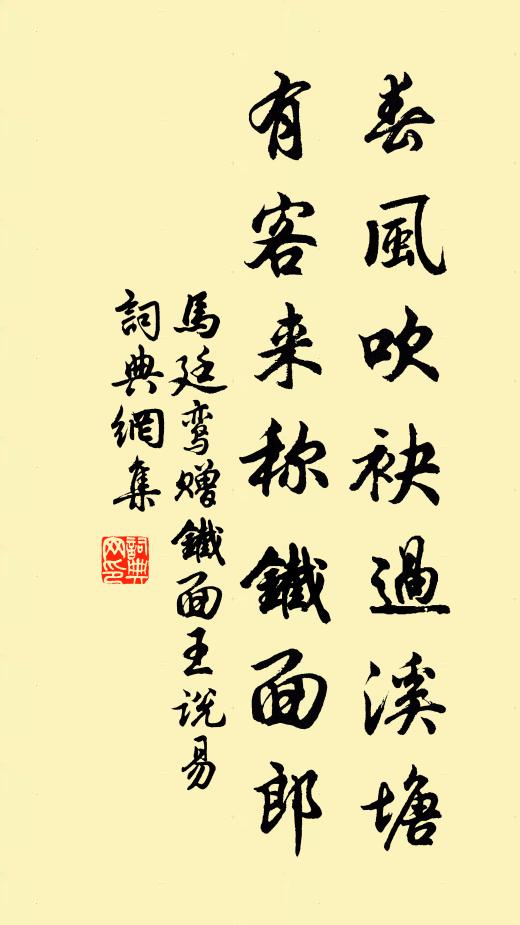 春風吹袂過溪塘
有客来称鐵面郎
馬廷鸾赠鐵面王说易
詞典網集
詞典网印